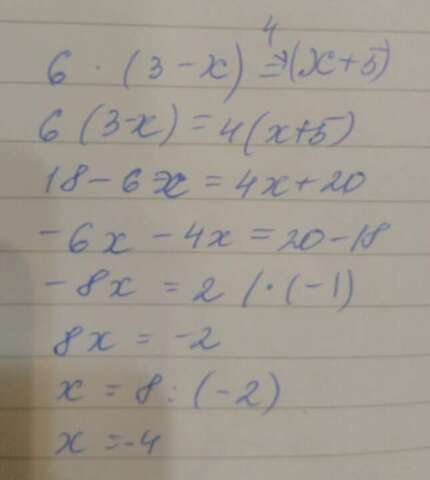 4
6 · (3 - x) = (x+5)
6 (3-x) = 4(x+5)
18 - 6x = 4x + 20
-6x - 4x = 20 - 18
-8x = 2 / · (-1)
8x = -2
x = 8 : (-2)
x = -4